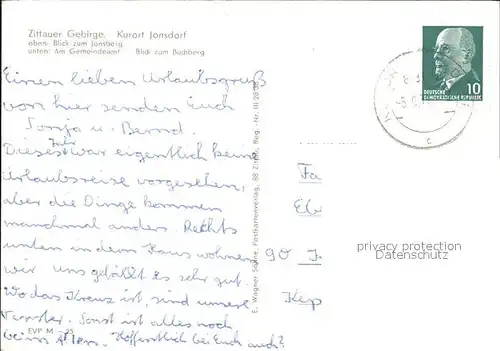 Zittauer Gebirge, Kurort Jonsdorf
oben: Blick zum Jonsberg
unten: Am Gemeindeamt Blick zum Buchberg
DEUTSCHE
DEMOKRATISCHE REPUBLIK 10
Einen lieben Urlaubsgruß
von hier senden Euch
Sonja u. Bernd.
Dieses Jahr war eigentlich keine
Urlaubsreise vorgesehen,
aber die Dinge kommen
manchmal anders. Rechts
unten in dem Haus wohnen
wir uns gefällt es sehr gut.
Wo das Kreuz ist, sind unsere
Fenster. Sonst ist alles noch
beim Alten. Hoffentlich bei Euch auch?
EVP M
E. Wagner Söhne, Postkartenverlag, 88 Zittau, Reg.-Nr. III
Fa
90
privacy protection
Datenschutz